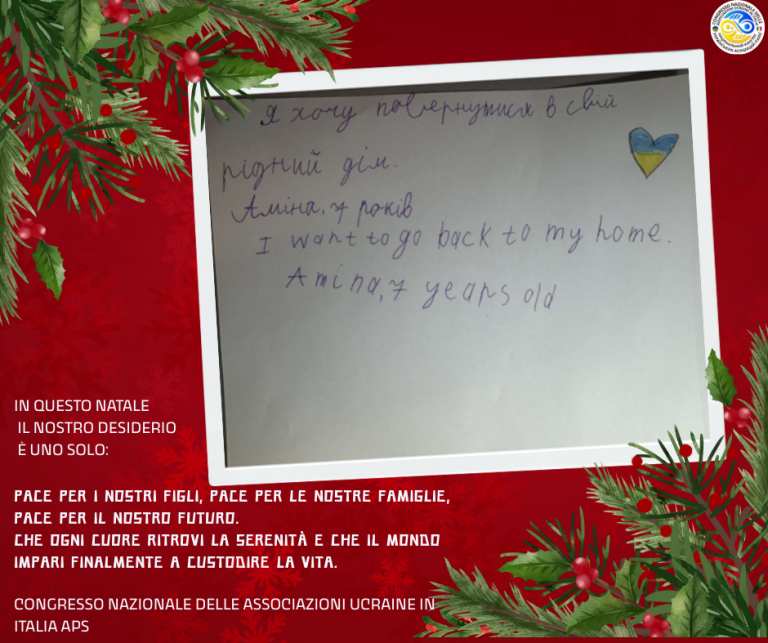 Я хочу повернутися в свій
рідний дім.
Аміна, 7 років
I want to go back to my home.
Amina, 7 years old
IN QUESTO NATALE
IL NOSTRO DESIDERIO
È UNO SOLO:
PACE PER I NOSTRI FIGLI, PACE PER LE NOSTRE FAMIGLIE,
PACE PER IL NOSTRO FUTURO.
CHE OGNI CUORE RITROVI LA SERENITÀ E CHE IL MONDO
IMPARI FINALMENTE A CUSTODIRE LA VITA.
CONGRESSO NAZIONALE DELLE ASSOCIAZIONI UCRAINE IN
ITALIA APS